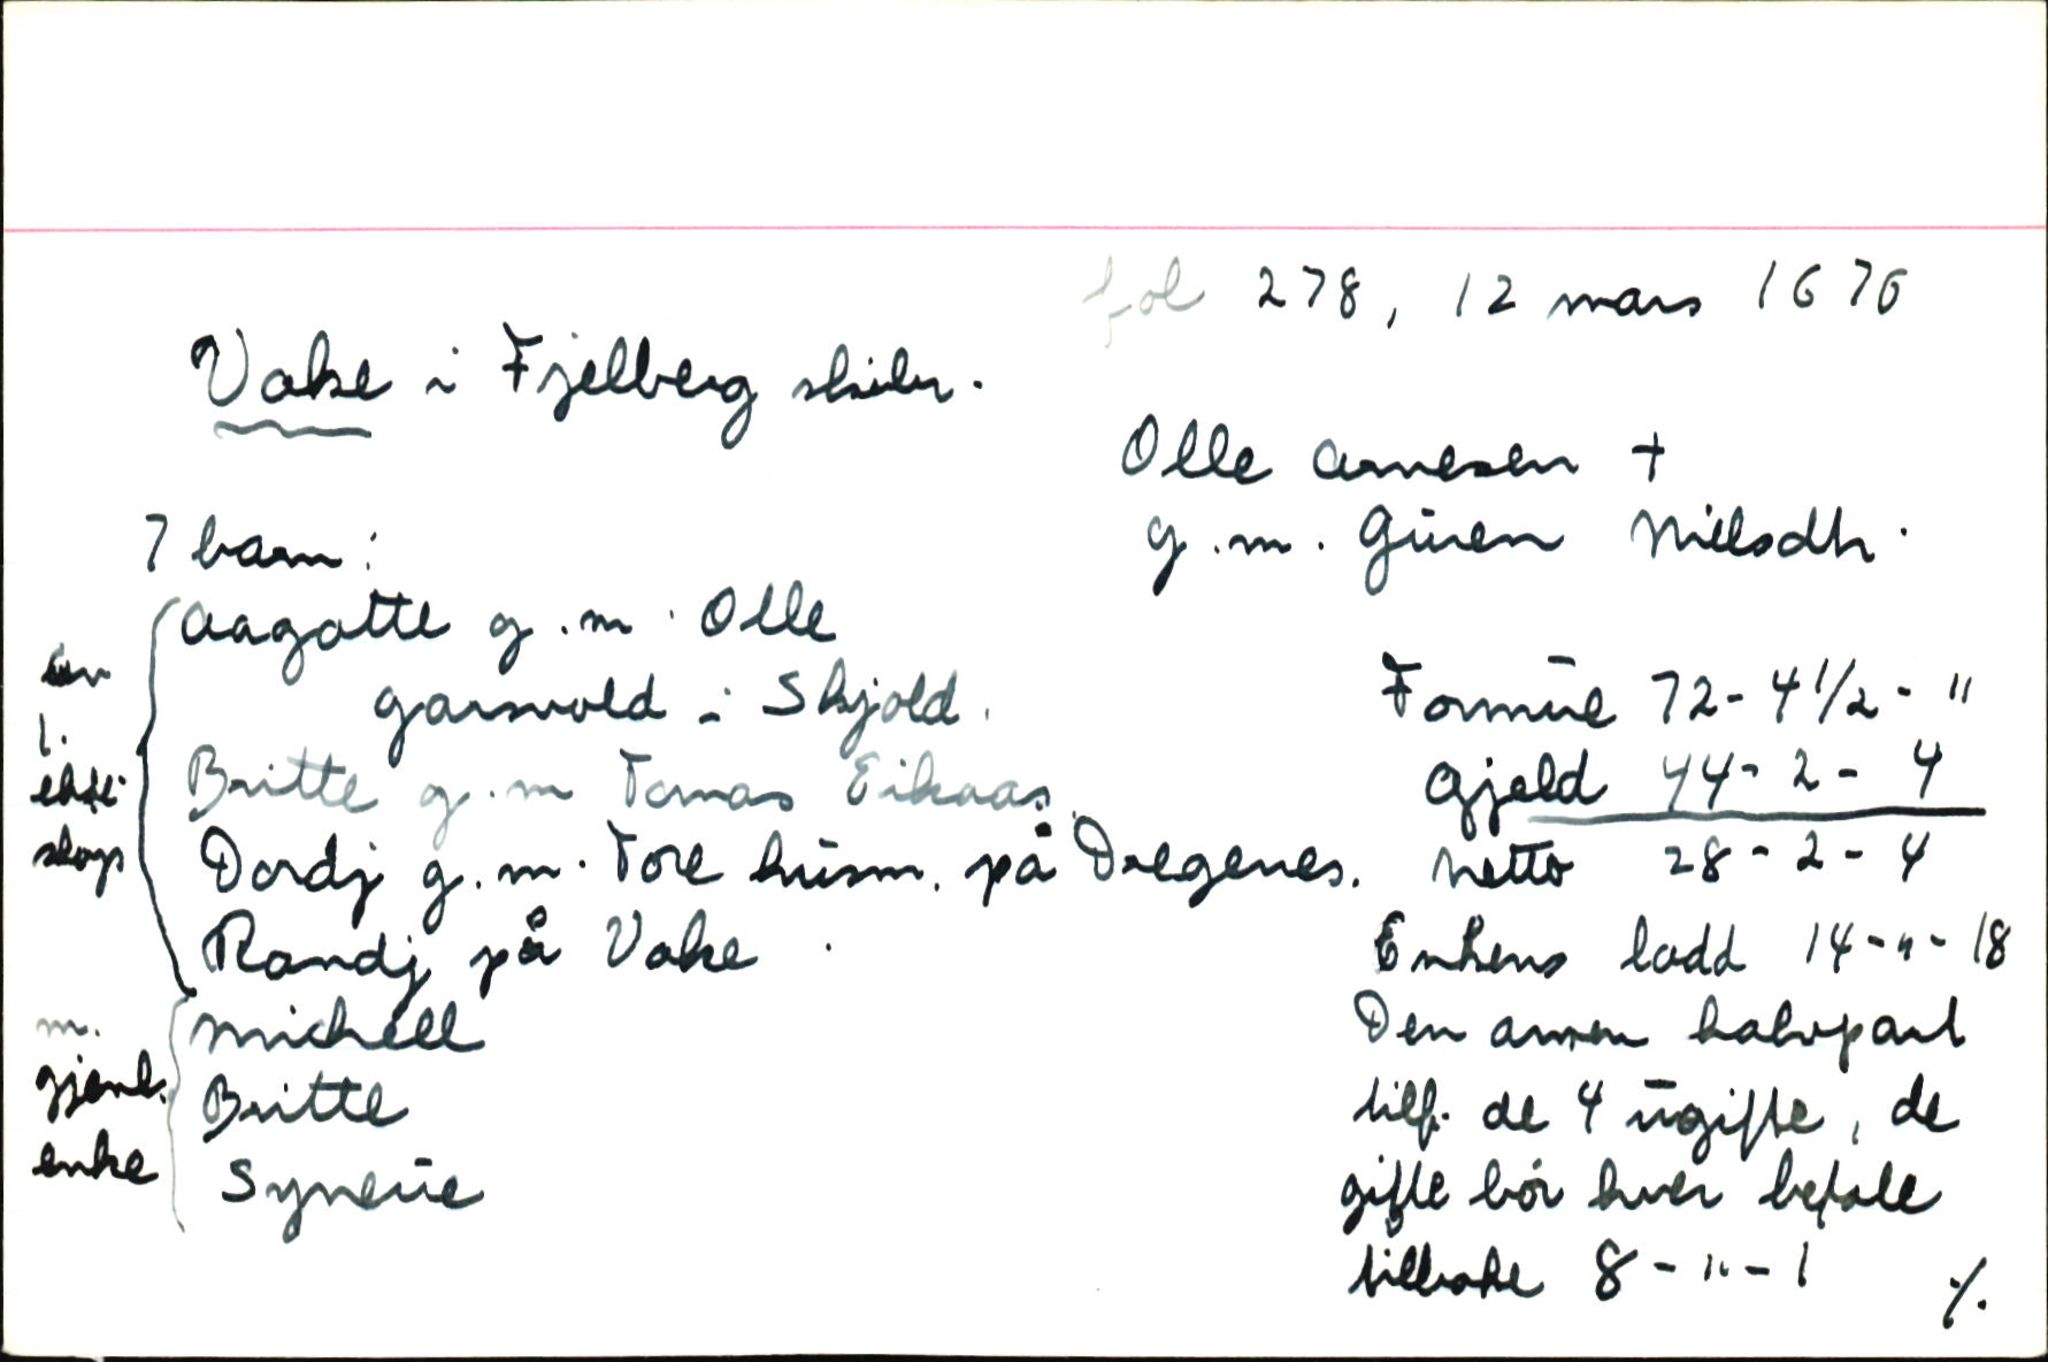 fol 278, 12 mars 1676
Vake i Fjelberg skibr.
Olle Arnesen +
g.m. Gúren Nielsdtr.
7 barn:
Aagotte g.m. Olle
Garsvold i Skjold.
Britte g.m Tomas Eikaas.
Dordj g.m. Tore húsm. på Dregenes.
Randj på Vake
1.
ekte
skap
Michell
Britte
Syneúe
m.
gjenl.
enke
Formúe 72 - 4 1/2 - "
Gjeld 44 - 2 - 4
Netto 28 - 2 - 4
Enkens lodd 14 - " - 18
Den annen halvpart
tilf. de 4 úgifte, de
gifte bör hver betale
tilbake 8 - " - 1
./.